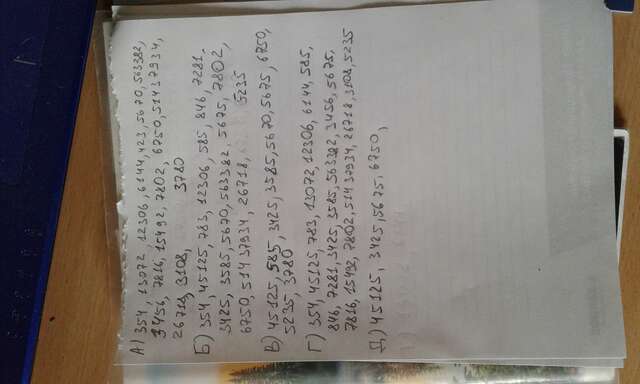 А) 354, 13072, 12306, 6144, 423, 5670, 563382,
3456, 7816, 15492, 7802, 6750, 51437934,
26718, 3108, 3780
Б) 354, 45125, 783, 12306, 585, 846, 7281,
3425, 3585, 5670, 563382, 5675, 7802,
6750, 51437934, 26718, 5235
В) 45125, 585, 3425, 3585, 5670, 5675, 6750,
5235, 3780
Г) 354, 45125, 783, 13072, 12306, 6144, 585,
846, 7281, 3425, 3585, 563382, 3456, 5675,
7816, 15492, 7802, 51437934, 26718, 3108, 5235
Д) 45125, 3425, 5675, 6750,